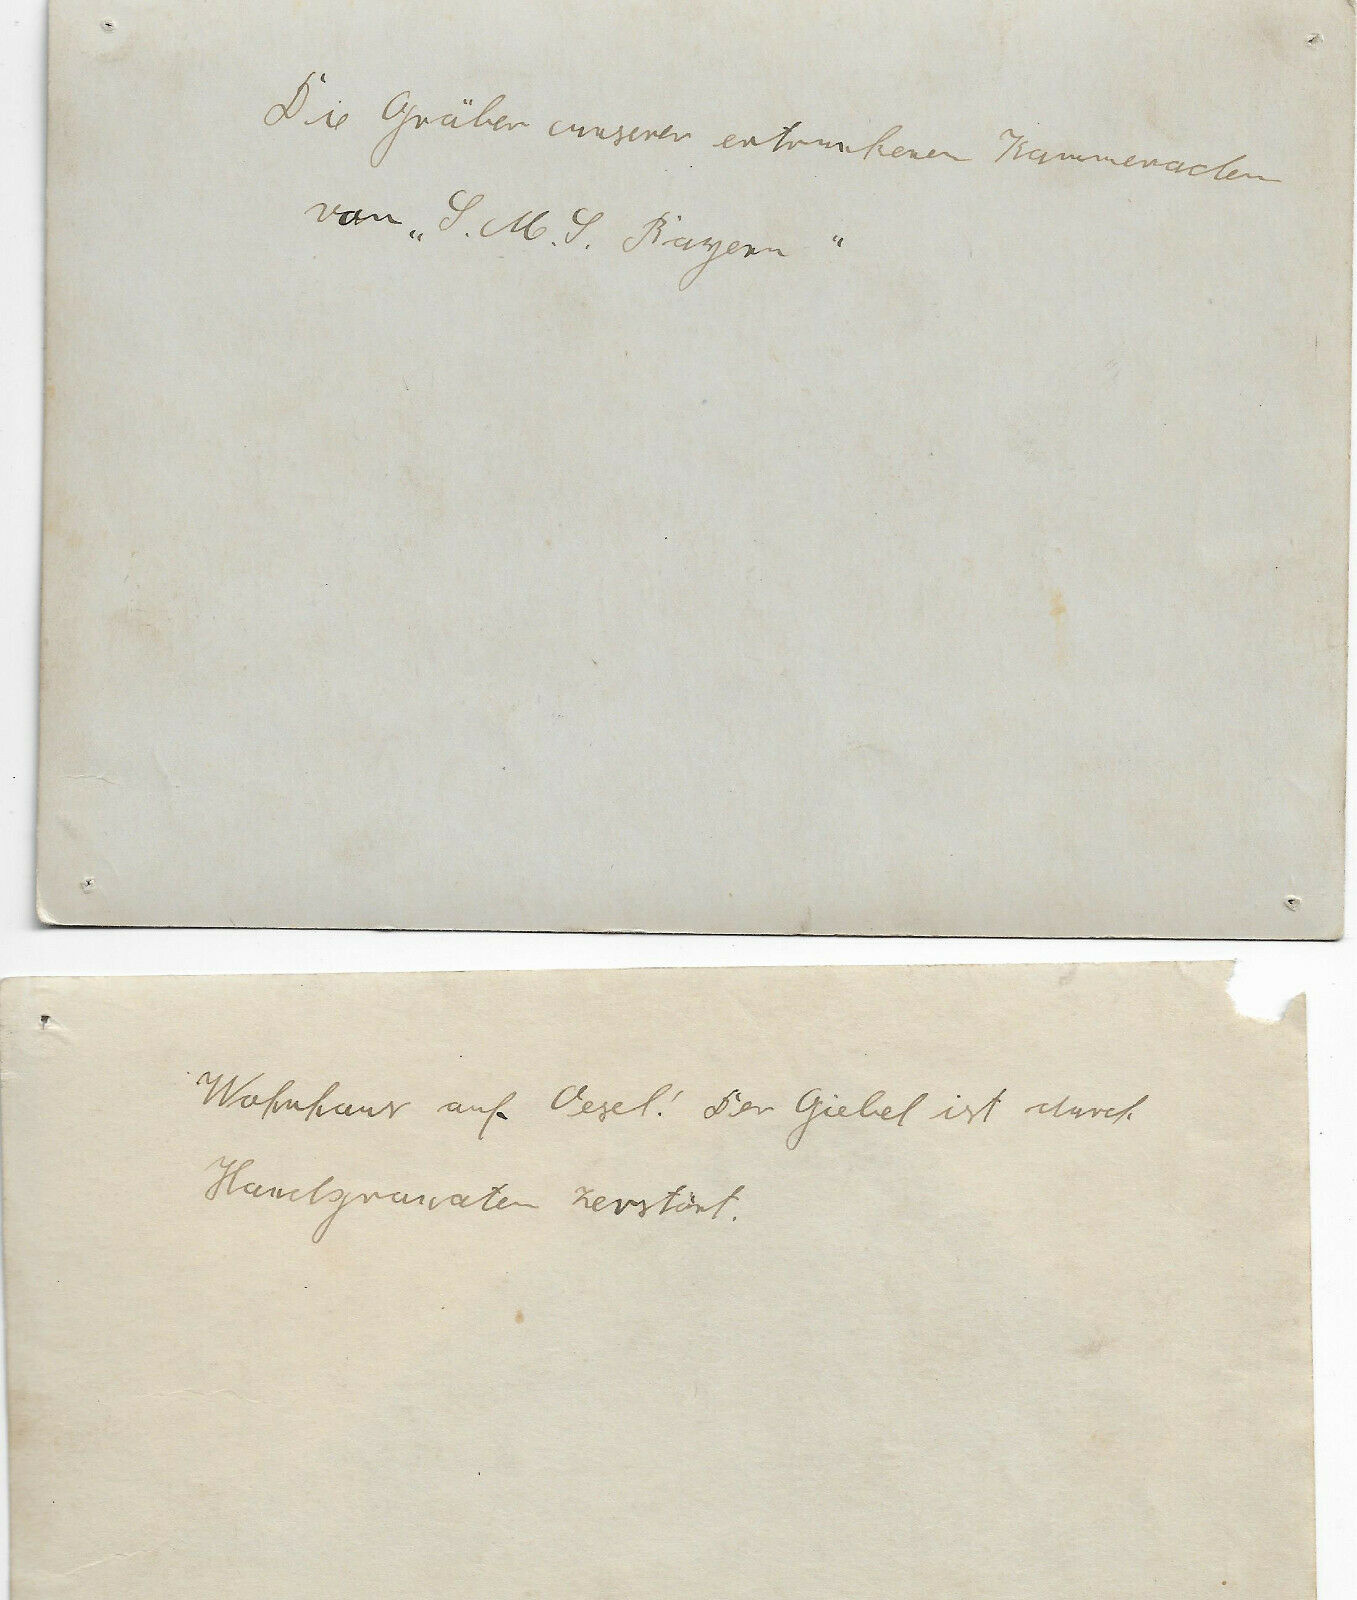 Die Gräber unserer ertrunkenen Kammeraden
von „S. M. S. Bayern“
Wohnhaus auf Oesel! Der Giebel ist durch
Handgranaten zerstört.